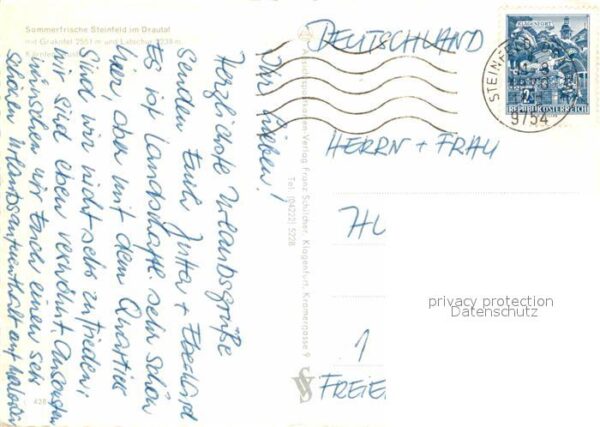 Sommerfrische Steinfeld im Drautal
mit Grakofel 2551 m und Latschur 2238 m
Kärnten
Ihr Lieben!
Herzlichste Urlaubsgrüße
senden Euch Jutta + Eberhard
Es ist landschaftl. sehr schön
hier, aber mit dem Quartier
sind wir nicht sehr zufrieden;
wir sind eben verwöhnt. Ansonsten
wünschen wir Euch einen sehr
schönen Urlaubsaufenthalt auf
Ansichtskarten-Verlag Franz Schilcher, Klagenfurt, Kramergasse 9
Tel. (04222) 5228
DEUTSCHLAND
KLAGENFURT
REPUBLIK ÖSTERREICH
STEINFELD
9754
HERRN + FRAU
HU
1
FREIE
privacy protection
Datenschutz